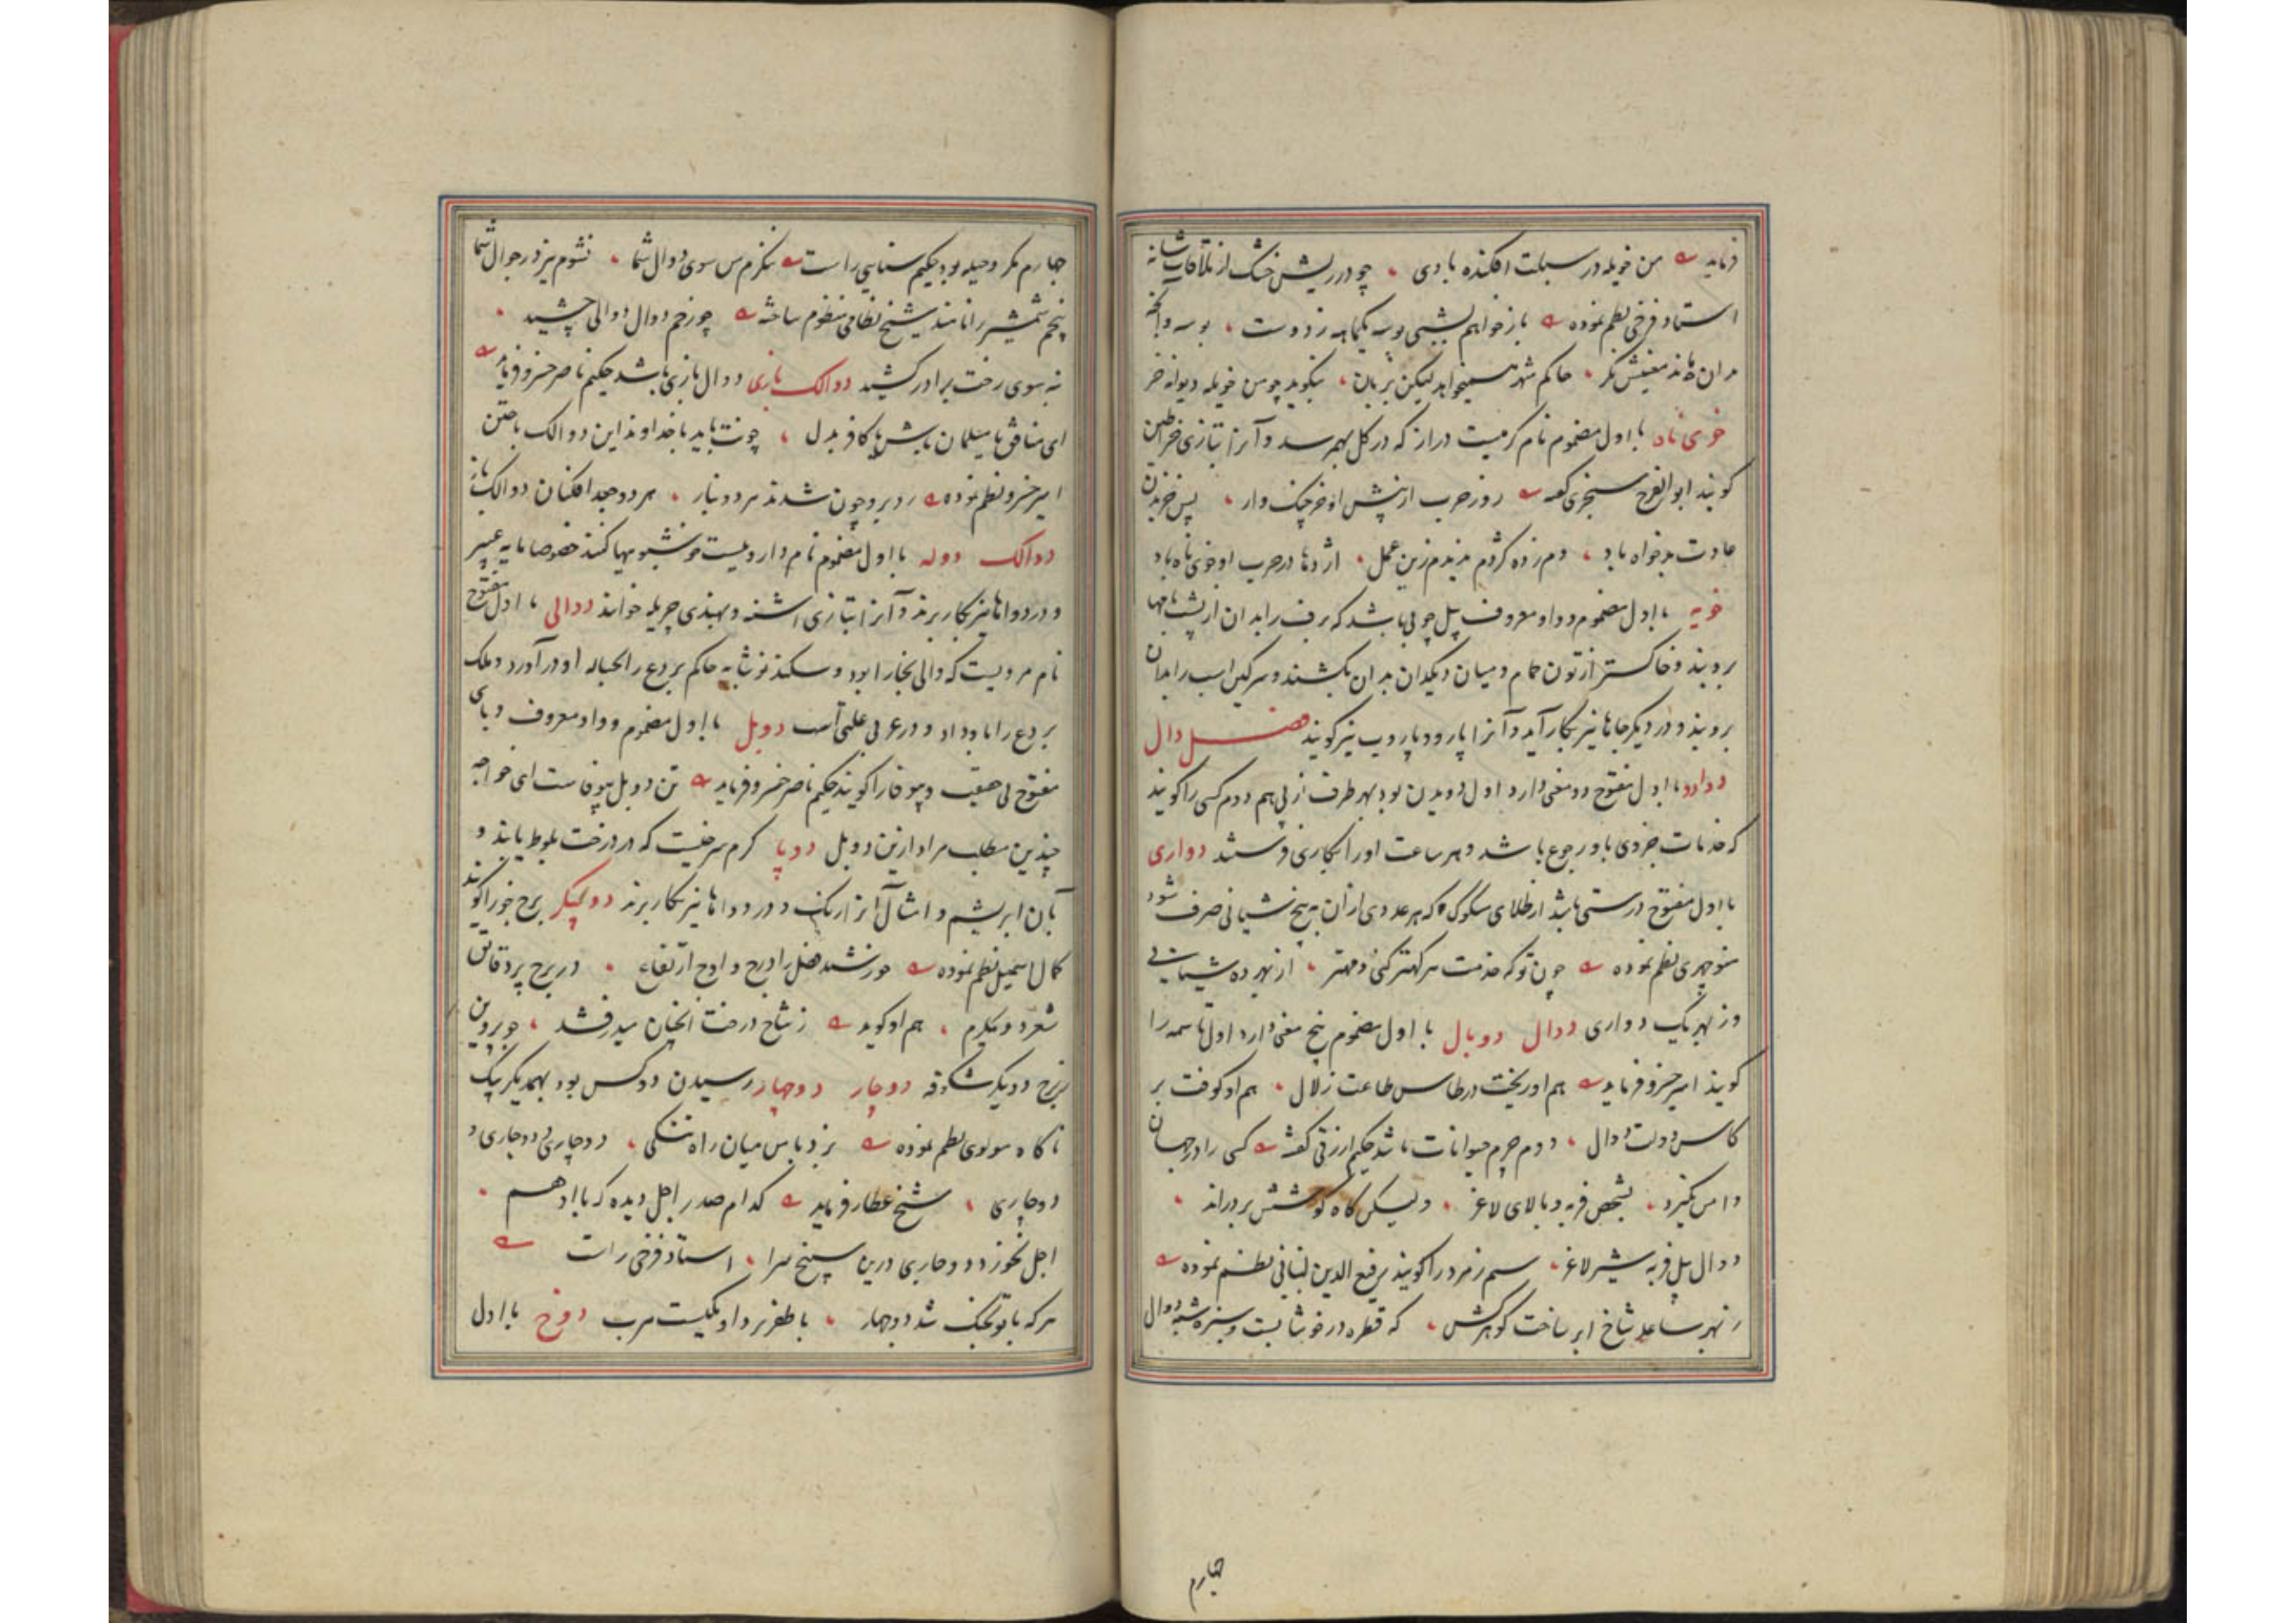 فرماید من خویله در سبلت افکنده بادی چو در ریش خشک از ملاقات شانه
استاد فرخی نظم نموده باز خواهم بشبی بوسه یکماهه ز دوست بوسه و
بدان معنیش نگر حاکم شهر همیخواهد لیکن بزبان بنگوید چو من خویله دیوانه خر
خوی ناد با اول مضموم نام کرمیست دراز که در گل بهم رسد و آنرا بتازی خراطین
گویند ابو الفرج سنجری گفته روز حرب از پیش او خرچنگ وار پس خزیدن
عادت بدخواه باد دم زده کژدم ندیدم زین عمل اژدها در حرب او خوی ناد باد
خویه با اول مضموم و واو معروف پیل چوبی باشد که برف را بدان از پشت بامها
بروبند و خاکستر از تون حمام و میان دیگدان بدان بکشند و سرگین اسب را بدان
بروبند و در دیگر جاها نیز بکار آید و آنرا پارو و پاروب نیز گویند فصل دال
دوادو با اول مفتوح دو معنی دارد اول دویدن بود بهر طرف از پی هم دوم کسی را گویند
که خدمات جزوی باو رجوع باشد و هر ساعت او را بکاری فرستند دواری
با اول مفتوح درستی باشد از طلای مسکوک که هر عددی از آن به پنج شیانی صرف شود
منوچهری نظم نموده چون تو که خدمت هر کهتر کنی و مهتر از بهر ده شیانی
وز بهر یک دواری دوال دوبال با اول مضموم پنج معنی دارد اول تسمه را
گویند امیر خسرو فرماید هم او ریخت در طاس طاعت زلال هم او کوفت بر
کاس دولت دوال دوم چرم حیوانات باشد حکیم ازرقی گفته کسی را در جهان
دامن نگیرد بشخص فربه و بالای لاغر ولیکن گاه کوشش بردراند
دوال پیل فربه شیر لاغر سیم زمرد را گویند رفیع الدین لنبانی نظم نموده
ز بهر ساعد شاخ ابر ساخت گوهرکش که قطره در خوشابست و سبزه شبه دوال
چهارم
چهارم مکر و حیله بود حکیم سنایی راست ننگرم من سوی دوال شما نشوم نیز در جوال شما
پنجم شمشیر را نامند شیخ نظامی منظوم ساخته چو زخم دوال دوالی چشید
به سوی رخت برادر کشید دوالک بازی دوال بازی باشد حکیم ناصر خسرو فرماید
ای منافق یا مسلمان باش یا کافر بدل چونت باید با خداوند این دوالک باختن
امیر خسرو نظم نموده روبرو چون شدند هر دو نبار هر دو جعد افکنان دوالک باز
دوالک دوله با اول مضموم نام داروییست خوشبو مهیا کنند خصوصا مایه عبیر
و در دواها نیز بکار برند و آنرا بتازی اشنه و بهندی چریله خوانند دوالی با اول مفتوح
نام مردیست که والی بخارا بود و سکندر نوشابه حاکم بردع را بحباله او در آورد و ملک
بردع را باو داد و در عربی علمی است دوبل با اول مضموم و واو معروف و بای
مفتوح بی حقیقت و بیوفا را گویند حکیم ناصر خسرو فرماید تن دوبل بیوفاست ای خواجه
چندین مطلب مراد ازین دوبل دوپا کرم سرخیست که در درخت بلوط یابند و
بآن ابریشم و امثال آنرا رنگ و در دواها نیز بکار برند دوپیکر برج جوزا گویند
کمال اسمعیل نظم نموده خورشید فضل را درج و اوج ارتفاع در برج پر دقایق
شعر دو پیکرم هم او گوید ز شاخ درخت آنچنان میدرفشد چو پروین
ز برج دو پیکر شکوفه دوچار دوچهار رسیدن دو کس بود بهمدیگر یک
ناگاه مولوی نظم نموده بزد با من میان راه تنگی دوچاری دوچاری و
دوچاری شیخ عطار فرماید کدام صدر اجل دیده که با او هم
اجل نخورد دوچاری درین سپنج سرا استاد فرخی راست
هر که با تو بجنگ شد دوچهار با ظفر نرد او یکیست هرب دوخ با اول